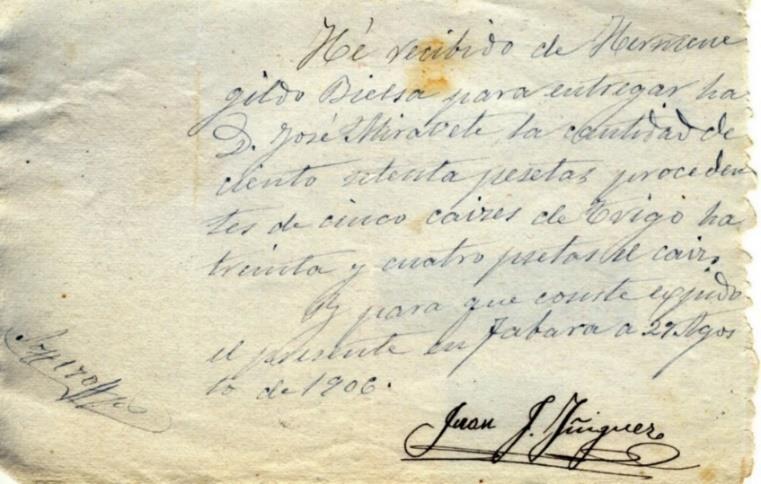 Hé recibido de Hermene
gildo Bielsa para entregar ha
D. José Miravete la cantidad de
ciento setenta pesetas proceden
tes de cinco caizes de Trigo ha
treinta y cuatro psetas el caiz.
Y para que conste expido
el presente en Fabara a 29 Agos
to de 1906.
170
Juan F. Yñiguez